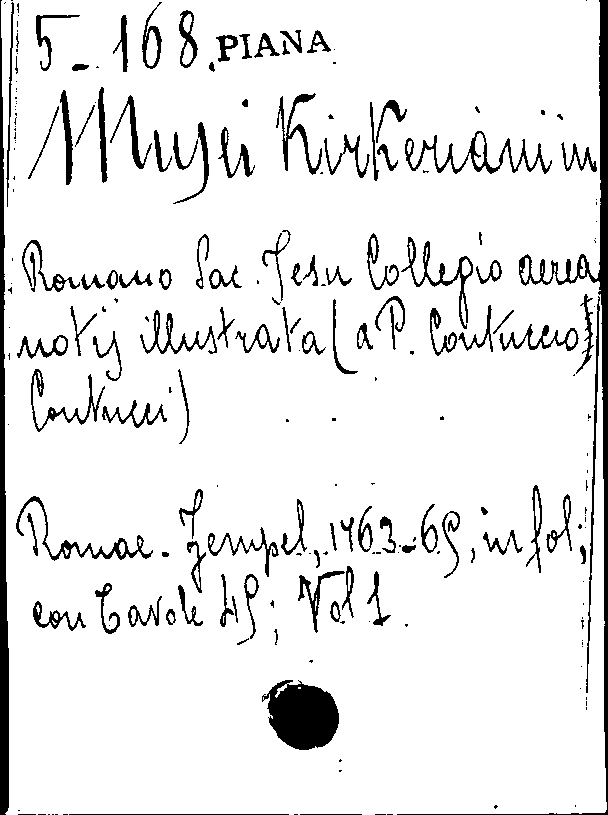 5-168.PIANA
Musei Kirkeriani in
Romano Soc. Jesu Collegio aerea
notis illustrata (a P. Contuccio)
Contucci)
Romae. Zempel, 1763-65, in fol;
con tavole 45; Vol 1.